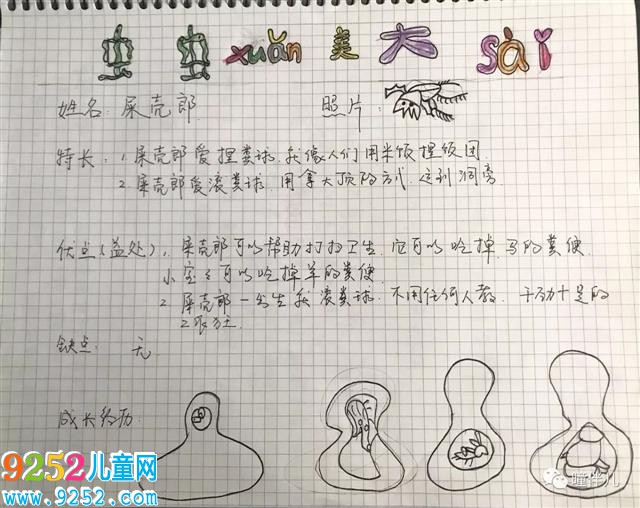 虫虫xuǎn美大sài
姓名:屎壳郎 照片:
特长:1.屎壳郎爱捏粪球,就像人们用米饭捏饭团.
2.屎壳郎爱滚粪球,用拿大顶的方式,运到洞旁
优点(益处)1.屎壳郎可以帮助打扫卫生.它可以吃掉马的粪便
小宝宝可以吃掉羊的粪便.
2.屎壳郎一出生就滚粪球.不用任何人教.干劲十足的
缺点:无
成长经历:
9252儿童网
www.9252.com
瞳伴儿